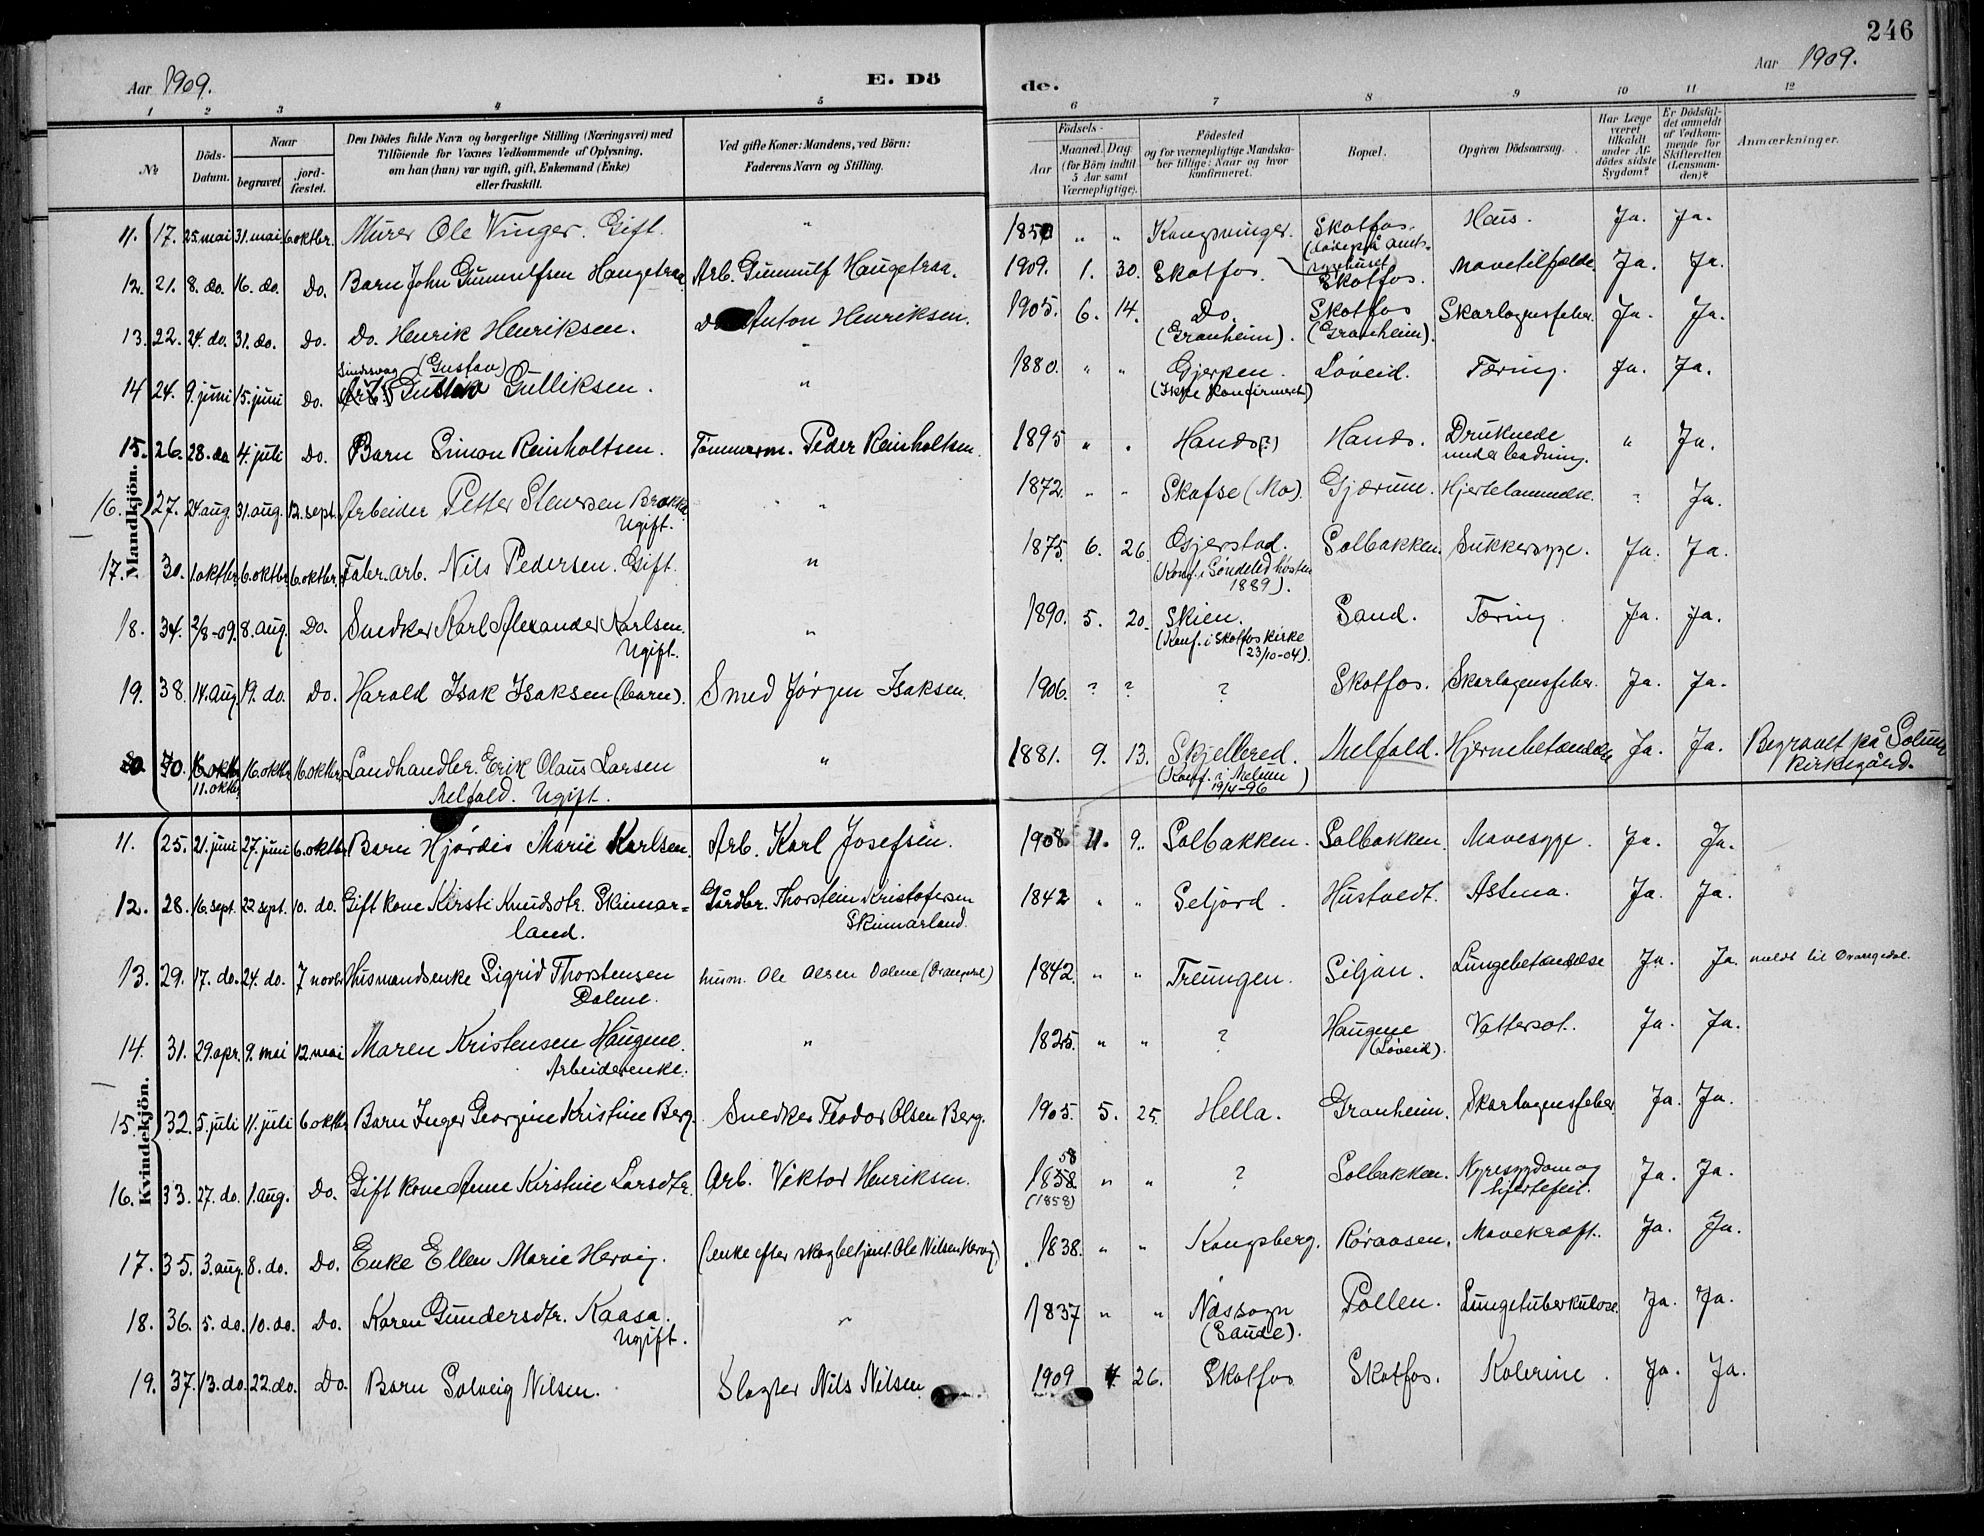 246
Aar 1909. E. Dö de. Aar 1909.
1 2 3 4 5 6 7 8 9 10 11 12
No
Döds-Datum.
Naar
begravet
jord-fæstet.
Den Dödes fulde Navn og borgerlige Stilling (Næringsvei) med
Tilföiende for Voxnes Vedkommende af Oplysning,
om han (hun) var ugift, gift, Enkemand (Enke)
eller fraskilt.
Ved gifte Koner: Mandens, ved Börn:
Faderens Navn og Stilling.
Födsels-
Aar
Maaned. Dag
(for Börn indtil
5 Aar samt
Værnepligtige).
Födested
og for værnepligtige Mandska-
ber tillige: Naar og hvor
konfirmeret.
Bopæl.
Opgiven Dödsaarsag.
Har Læge
været
tilkaldt
under Af-
dödes sidste
Sygdom?
Er Dödsfal-
det anmeldt
af Vedkom-
mende for
Skifteretten
(Lensman-
den)?
Anmærkninger.
Mandkjön.
11. 17. 25. mai 31. mai 6 oktbr. Murer Ole Vinger. Gift. " 1850 " " Kongsvinger. Skotfos. Haus. Ja. Ja.
(døde på amts-
sygehuset)
12. 21. 8. do. 16. do. Do. Barn John Gunnulfsen Haugetraa. Arb. Gunnulf Haugetraa. 1909. 1. 30. Skotfos. Skotfos. Mavetilfælde Ja. Ja.
13. 22. 24. do. 31. do. Do. Do. Henrik Henriksen. Do. Anton Henriksen. 1905. 6. 14. Do. Skotfos Skarlagensfeber. Ja. Ja.
(Granheim). (Granheim).
Sindssvag (Gustav)
14 24. 9. juni 15. juni Do. (Arb.) Gustav Gulliksen. " 1880. " " Gjerpen. Løveid. Tæring. Ja. Ja.
(Ikke konfirmert)
15. 26. 28. do 4. juli Do. Barn Simon Reinholtsen. Tømmerm. Peder Reinholtsen. 1895 " " Hands(?) Hands. Druknede " Ja.
under badning.
16. 27. 24 aug. 31. aug. 12. sept. Arbeider Petter Stenersen Brokka. " 1872. " " Skafse (Mo). Gjærum. Hjertelammelse. " Ja.
Ugift.
17. 30. 1. oktbr. 6. oktbr. 6. oktbr. Fabr. arb. Nils Pedersen. Gift. " 1875. 6. 26 Gjerstad. Solbakken. Sukkersyge. Ja. Ja.
(Konf. i Søndeled høsten
1889).
18. 34. 2/8-09. 8. aug. Do. Snedker Karl Alexander Karlsen. " 1890. 5. 20. Skien. Sand. Tæring. Ja. Ja.
Ugift. (Konf. i Skotfos kirke
23/10-04).
19. 38. 14. aug. 19. do. Do. Harald Isak Isaksen (barn). Smed Jørgen Isaksen. 1906. ? ? ? Skotfos. Skarlagensfeber. Ja. Ja.
20 40. 6. oktbr. 16. oktbr. 16. oktbr. Landhandler. Erik Olaus Larsen " 1881. 9. 13. Skjellered. Melfald. Hjernebetændelse Ja. Ja. Begravet på Solum
11. oktbr. Melfald. Ugift. (Konf. i Melum kirkegård.
19/4-96)
Kvindekjön.
11. 25. 21. juni 27. juni 6. oktbr. Barn Hjørdis Marie Karlsen. Arb. Karl Josefsen. 1908 11. 9. Solbakken. Solbakken. Mavesyge. Ja. Ja.
12. 28. 16. sept. 22. sept. 10. do. Gift kone Kirsti Knudsdtr. Skinnar= Gårdbr. Thorstein Kristofersen 1842 " " Seljord. Hustvedt. Astma. Ja. Ja.
land. Skinnarland.
13. 29. 17. do. 24. do. 7 novbr. Husmandsenke Sigrid Thorstensen husm. Ole Olsen Dalene (Drangedal) 1842. " " Treungen. Siljan. Lungebetændelse Ja. Ja. meldt til Drangedal.
Dalene.
14. 31. 29. apr. 9. mai 12. mai Maren Kristensen Haugene. " 1825. " " ? Haugene Vattersot. Ja. Ja.
Arbeiderenke. (Løveid).
15. 32. 5. juli 11. juli 6 oktbr. Barn Inger Georgine Kristine Berg. Snedker Teodor Olsen Berg. 1905. 5. 25. Hella. Granheim. Skarlagensfeber Ja. Ja.
58
16. 33. 27. do. 1. aug. Do. Gift kone Anne Kirstine Larsdtr. Arb. Viktor Henriksen. 1858 " " ? Solbakken. Nyresygdom og Ja. Ja.
(1858) hjertefeil.
17. 35. 3. aug. 8. do. Do. Enke Ellen Marie Hervig. (enke efter skogbetjent. Ole Nilsen Hervig) 1838. " " Kongsberg. Røraasen. Mavekræft. Ja. Ja.
18. 36. 5. do. 10. do. Do. Karen Gundersdtr. Kaasa. " 1837 " " Nässogn Pollen. Lungetuberkulose. Ja. Ja.
Ugift. (Saude).
19. 37. 13. do. 22. do. Do. Barn Solveig Nilsen. Slagter Nils Nilsen 1909 4 26. Skotfos Skotfos. Kolerine. Ja. Ja.